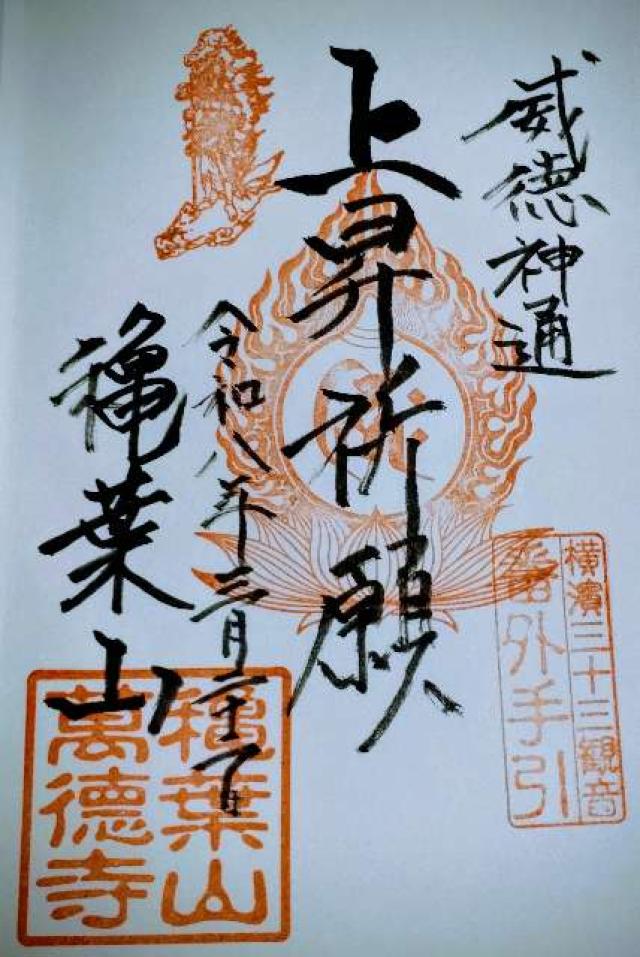 威徳神通
上昇祈願
令和八年三月二十一日
龝葉山
横濱三十三観音
番外手引
龝葉山
萬德寺